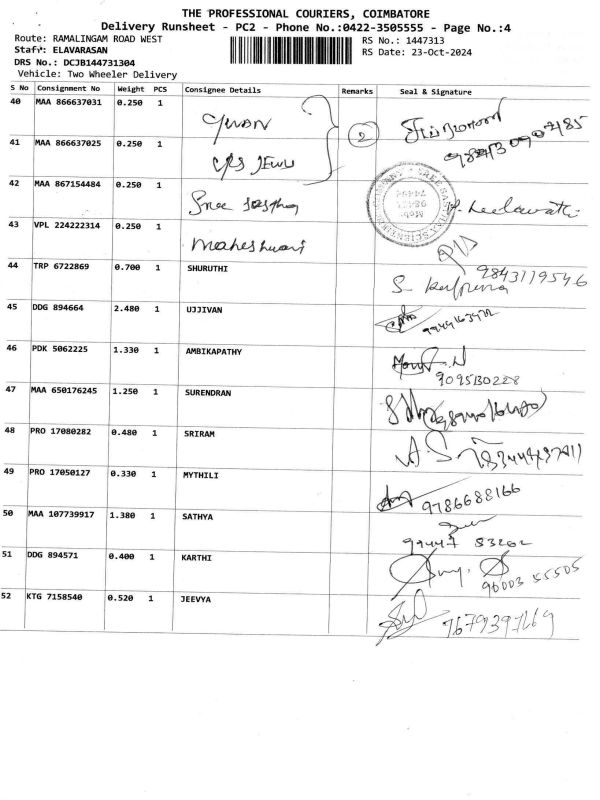 THE PROFESSIONAL COURIERS, COIMBATORE
Delivery Runsheet - PC2 - Phone No.:0422-3505555 - Page No.:4
Route: RAMALINGAM ROAD WEST
RS No.: 1447313
Staff: ELAVARASAN
RS Date: 23-Oct-2024
DRS No.: DCJB144731304
Vehicle: Two Wheeler Delivery
S No Consignment No Weight PCS Consignee Details Remarks Seal & Signature
40 MAA 866637031 0.250 1
41 MAA 866637025 0.250 1 2
42 MAA 867154484 0.250 1 Sree
43 VPL 224222314 0.250 1 Maheshwari
44 TRP 6722869 0.700 1 SHURUTHI 9843119546
45 DDG 894664 2.480 1 UJJIVAN
46 PDK 5062225 1.330 1 AMBIKAPATHY
9095130228
47 MAA 650176245 1.250 1 SURENDRAN
48 PRO 17080282 0.480 1 SRIRAM
49 PRO 17050127 0.330 1 MYTHILI
9786688166
50 MAA 107739917 1.380 1 SATHYA
99447 83262
51 DDG 894571 0.400 1 KARTHI
96003 55505
52 KTG 7158540 0.520 1 JEEVYA